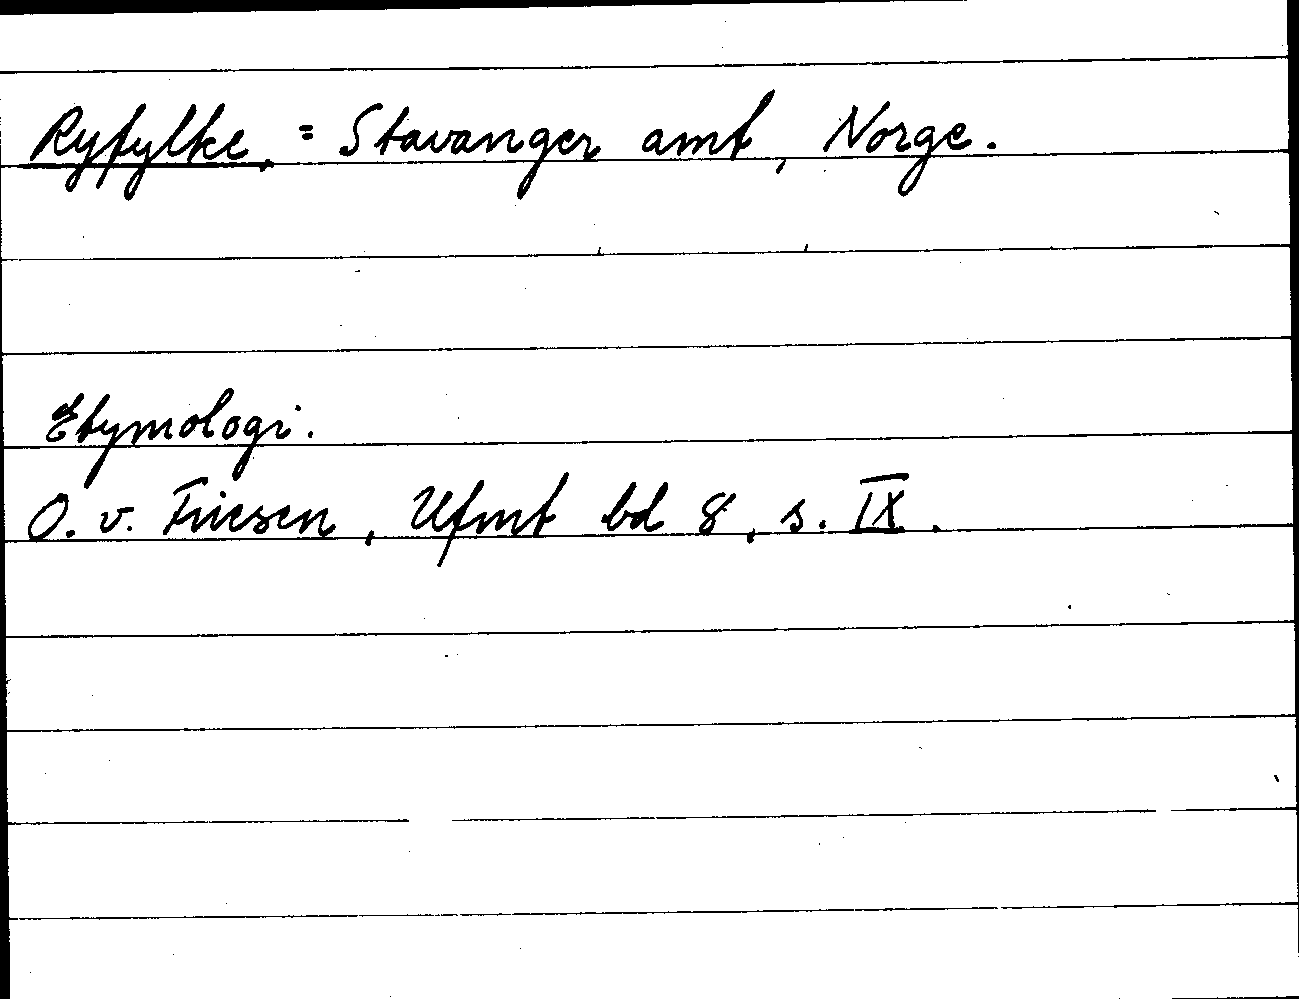 Ryfylke. = Stavanger amt, Norge.
Etymologi.
O. v. Friesen, Ufmt bd 8, s. IX.